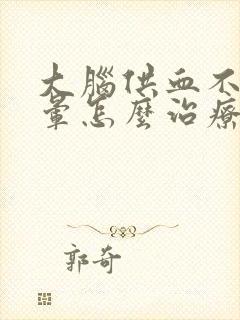 大腦供血不
暈怎麼治療
郭奇